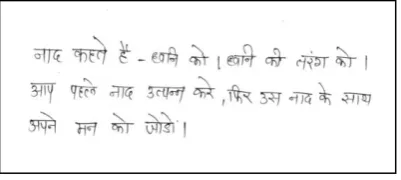 नाद कहते हैं - ध्वनि को । ध्वनि की तरंग को ।
आप पहले नाद उत्पन्न करे, फिर उस नाद के साथ
अपने मन को जोडो ।